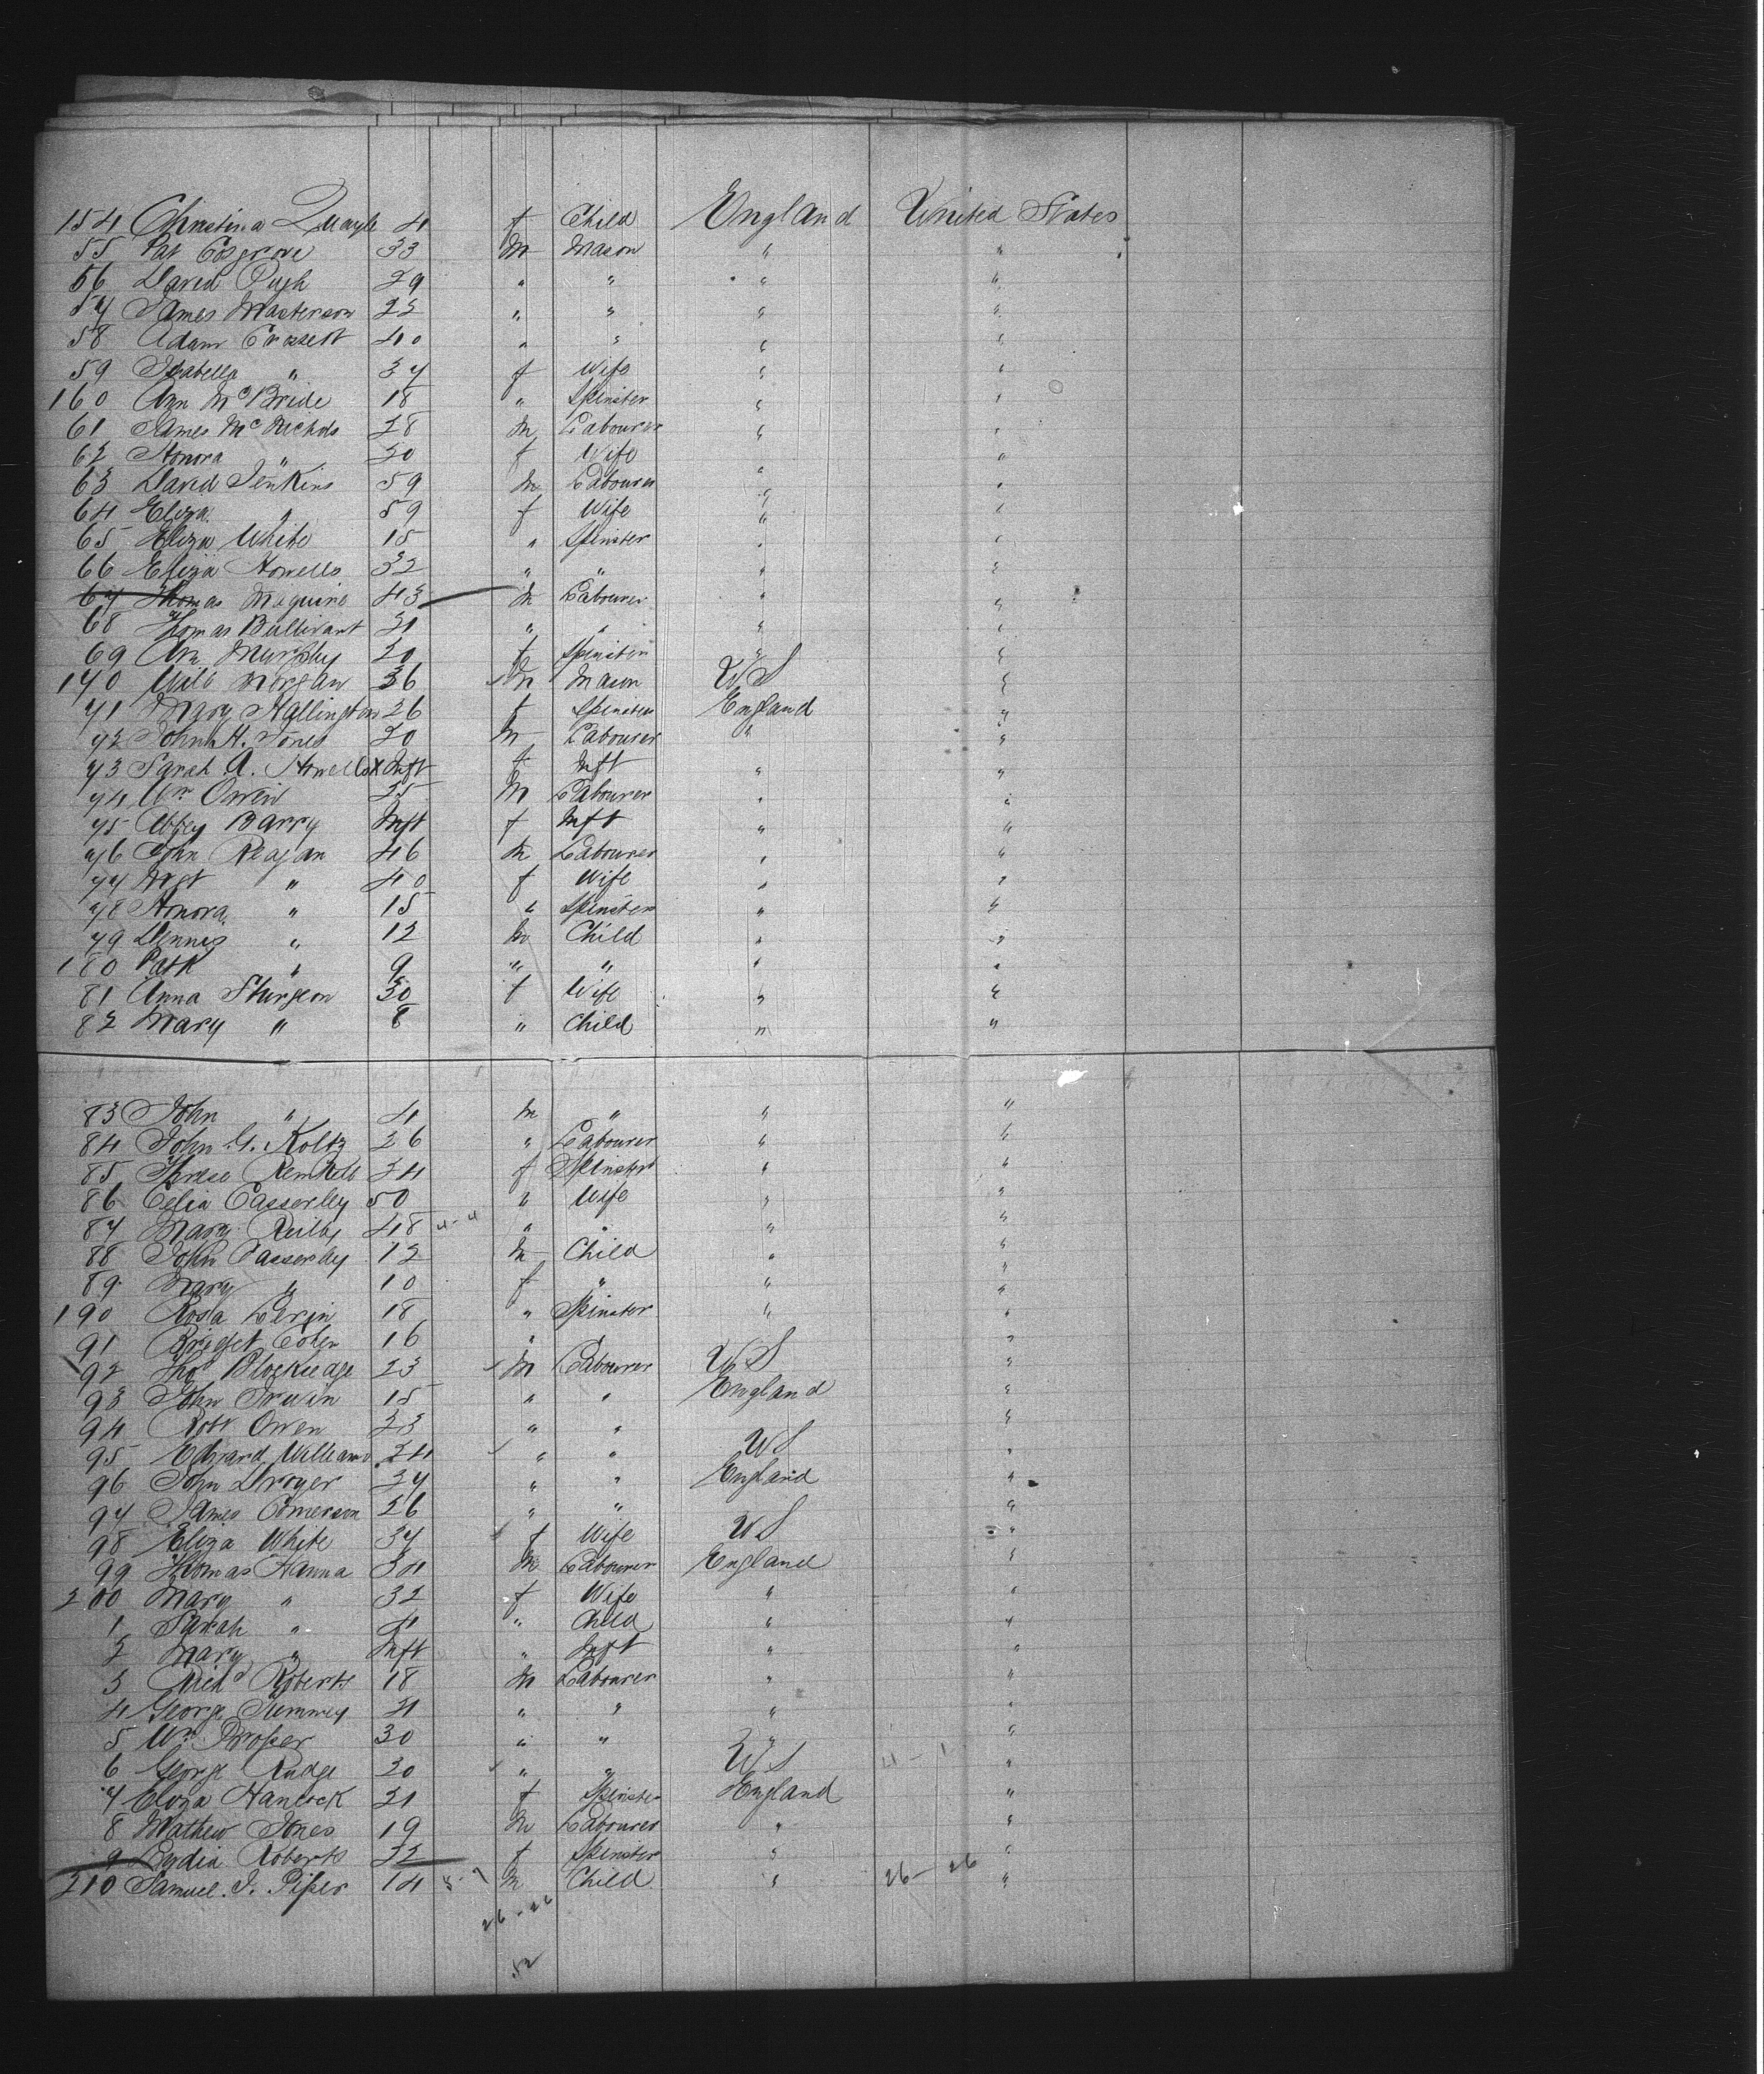 154 Christina Quayle 4 f Child England United States
55 Pat Cosgrove 33 M Mason " "
56 David Pugh 29 " " " "
57 James Masterson 22 " " " "
58 Adam 40 " " " "
59 Isabella " 37 f Wife " "
160 Ann McBride 18 " Spinster " "
61 James McNichols 28 M Labourer " "
62 Honora " 30 f Wife " "
63 David Jenkins 59 M Labourer " "
64 Eliza " 59 f Wife " "
65 Eliza White 15 " Spinster " "
66 Eliza Howells 32 " " " "
67 Thomas Maguire 43 M Labourer " "
68 Thomas Bullivant 21 " " " "
69 Ann Murphy 20 f Spinster " "
170 Will Morgan 36 M Mason US "
71 Mary Hallington 26 f Spinster England "
72 John H. Jones 20 M Labourer " "
73 Sarah A. Howells X Inft f Inft " "
74 Wm Owen 25 M Labourer " "
75 Abbey Barry Inft f Inft " "
76 John Reagan 46 M Labourer " "
77 Mgt " 40 f Wife " "
78 Honora " 15 " Spinster " "
79 Dennis " 12 M Child " "
180 Patk " 9 " " " "
81 Anna Sturgeon 30 f Wife " "
82 Mary " 8 " Child " "
83 John " 4 M " " "
84 John G. Koltz 26 " Labourer " "
85 24 f Spinster " "
86 Celia Casserley 50 " Wife " "
87 Mary Reilly 48 4-4 " " " "
88 John Casserley 12 M Child " "
89 Mary " 10 f " " "
190 Rosa 18 " Spinster " "
91 Bridget 16 " " "
92 Thos 23 M Labourer US "
93 John Irwin 15 " " England "
94 Robt Owen 23 " " "
95 Edward Williams 24 " " US "
96 John Droyer 27 " " England "
97 James Comerson 26 " " "
98 Eliza White 37 f Wife US "
99 Thomas Hanna 34 M Labourer England "
200 Mary " 32 f Wife " "
1 Sarah " 4 " Child " "
2 Mary " Inft " Inft " "
3 Richd Roberts 18 M Labourer " "
4 George 21 " " " "
5 Wm Prosser 30 " " " "
6 George Rudge 20 " " US 4-1 "
7 Eliza Hancock 21 f Spinster England "
8 Mathew Jones 19 M Labourer " "
9 Lydia Roberts 22 f Spinster " "
210 Samuel J. Piper 14 M Child " 26-26 "
26-26
52